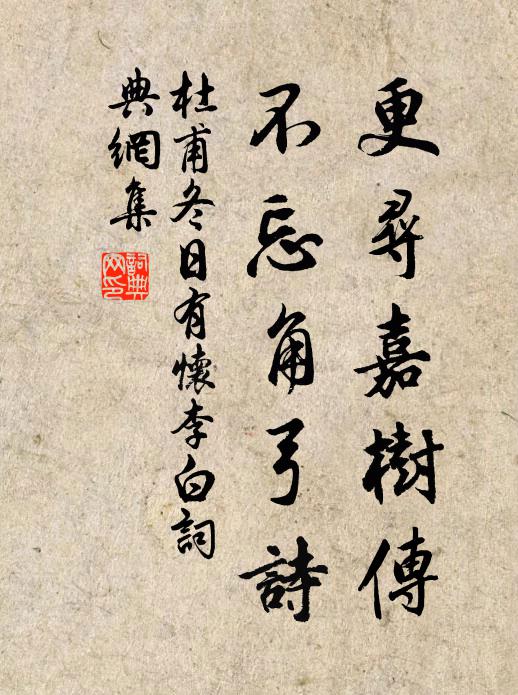 更尋嘉樹傳
不忘角弓詩
杜甫冬日有懷李白詞
典網集
詞典
网印